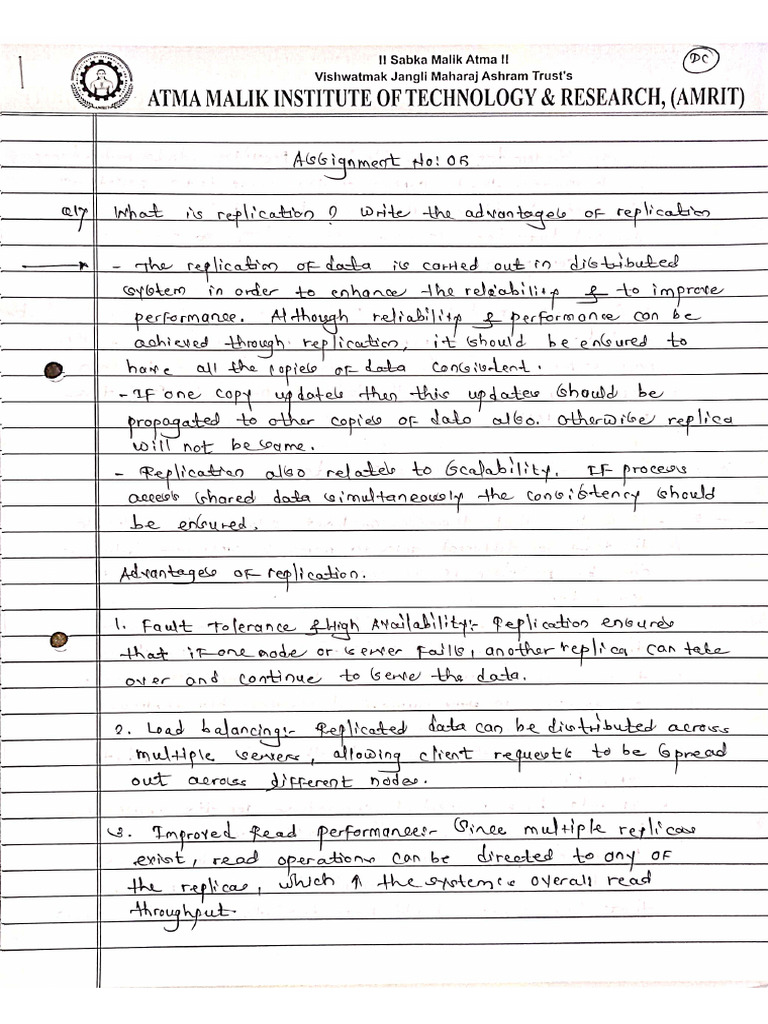 !! Sabka Malik Atma !!
DC
Vishwatmak Jangli Maharaj Ashram Trust's
ATMA MALIK INSTITUTE OF TECHNOLOGY & RESEARCH, (AMRIT)
Assignment No: 05
Q17 What is replication? Write the advantages of replication
- The replication of data is carried out in distributed
system in order to enhance the reliability & to improve
performance. Although reliability & performance can be
achieved through replication, it should be ensured to
have all the copies of data consistent.
- If one copy updates then this updates should be
propagated to other copies of data also. Otherwise replica
will not be same.
- Replication also relates to Scalability. If process
access shared data simultaneously the consistency should
be ensured.
Advantages of replication.
1. Fault Tolerance & High Availability:- Replication ensures
that if one node or server fails, another replica can take
over and continue to serve the data.
2. Load balancing:- Replicated data can be distributed across
multiple servers, allowing client requests to be spread
out across different nodes.
3. Improved Read Performance:- Since multiple replicas
exist, read operations can be directed to any of
the replicas, which ↑ the system's overall read
throughput.